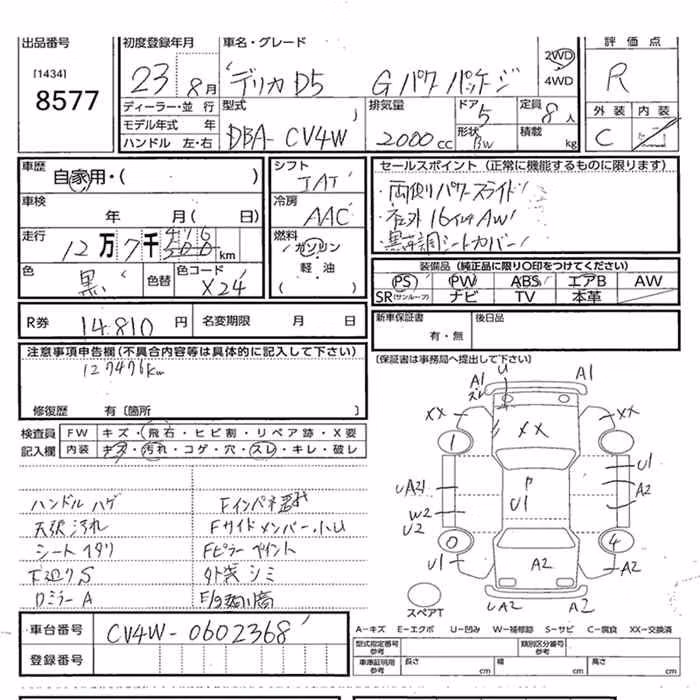 出品番号
[1434]
8577
初度登録年月
23 8月
車名・グレード
デリカD5 Gパワーパッケージ
2WD
4WD
評価点
R
外装 内装
C
ディーラー・並行
モデル年式 年
ハンドル 左・右
型式
DBA-CV4W
排気量
2000cc
ドア
5
形状
BW
定員
8人
積載
kg
車歴
自家用・( )
車検
年 月 ( 日)
走行
12万7千476km
500
色
黒
色替
色コード
X24
シフト
IAT
冷房
AAC
燃料
ガソリン
軽油
( )
セールスポイント (正常に機能するものに限ります)
・両側パワースライド
・社外16インチAW
・黒革調シートカバー
装備品 (純正品に限り○印をつけてください)
PS PW ABS エアB AW
SR(サンルーフ) ナビ TV 本革
R券 14,810円
名変期限 月 日
新車保証書
有・無
後日品
(保証書は事務局へ提出して下さい)
注意事項申告欄(不具合内容等は具体的に記入して下さい)
127476km
修復歴 有〔箇所 〕
検査員
記入欄
FW キズ・飛石・ヒビ割・リペア跡・X要
内装 キズ・汚れ・コゲ・穴・スレ・キレ・破レ
ハンドルハゲ
天張汚れ
シートヘタリ
下廻りS
DミラーA
Fインパネ
FサイドメンバーハU
Fピラーペイント
外装シミ
A1
スレ
U
A1
XX
XX
XX
1
U1
A2
UA21
W2
U2
P
U1
0
4
U1
A2
A2
UA2
A2
スペアT
A-キズ E-エクボ U-凹み W-補修跡 S-サビ C-腐食 XX-交換済
車台番号 CV4W-0602368
登録番号
型式指定番号
参考
類別区分番号
参考
車庫証明用
参考
長さ cm
幅 cm
高さ cm